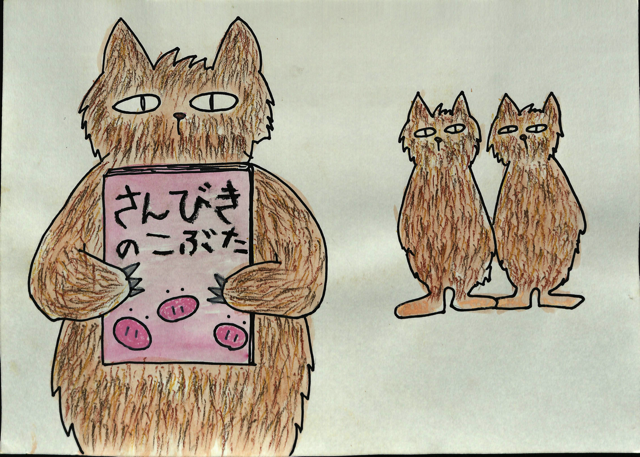 さんびき
のこぶた